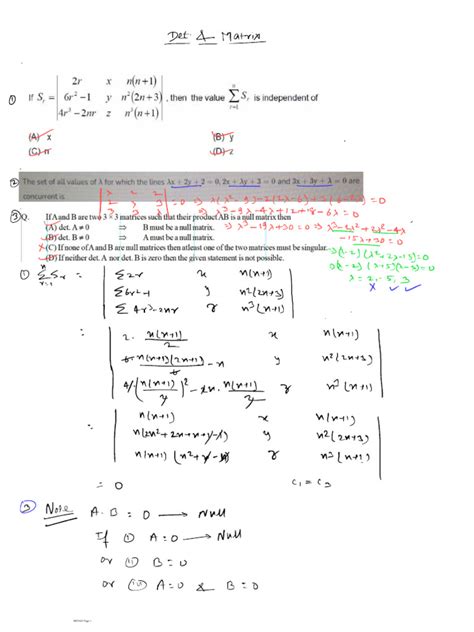 Det. & Matrix
① If S_r = | 2r x n(n+1) |
| 6r² − 1 y n²(2n+3) |
| 4r³ − 2nr z n³(n+1) | , then the value Σ_{r=1}^{n} S_r is independent of
(A) x (B) y
(C) n (D) z
② The set of all values of λ for which the lines λx + 2y + 2 = 0, 2x + λy + 3 = 0 and 3x + 3y + λ = 0 are
concurrent is
| λ 2 2 |
| 2 λ 3 |
| 3 3 λ | = 0 ⇒ λ(λ² − 9) − 2(2λ − 9) + 2(6 − 3λ) = 0
③Q. If A and B are two 3 × 3 matrices such that their product AB is a null matrix then
⇒ λ³ − 9λ − 4λ + 18 + 12 − 6λ = 0
(A) det. A ≠ 0 ⇒ B must be a null matrix. ⇒ λ³ − 19λ + 30 = 0 ⇒ λ³ − 2λ² + 2λ² − 4λ
(B) det. B ≠ 0 ⇒ A must be a null matrix. − 15λ + 30 = 0
(C) If none of A and B are null matrices then atleast one of the two matrices must be singular. ⇒ (λ−2)(λ² + 2λ − 15) = 0
(D) If neither det. A nor det. B is zero then the given statement is not possible. (λ−2)(λ+5)(λ−3) = 0
λ = 2, −5, 3
① Σ_{r=1}^{n} S_r = | Σ2r x n(n+1) |
| Σ6r² − 1 y n²(2n+3) |
| Σ4r³ − 2nr z n³(n+1) |
= | 2. n(n+1)/2 x n(n+1) |
| 6. n(n+1)(2n+1)/6 − n y n²(2n+3) |
| 4.(n(n+1)/2)² − 2n. n(n+1)/2 z n³(n+1) |
= | n(n+1) x n(n+1) |
| n(2n² + 2n + n + 1 − 1) y n²(2n+3) |
| n(n+1)(n² + n − n) z n³(n+1) |
= 0 C₁ = C₃
③ Note A.B = 0 → Null
If ① A = 0 → Null
or ⓘⓘ B = 0
or ⓘⓘⓘ A = 0 & B = 0